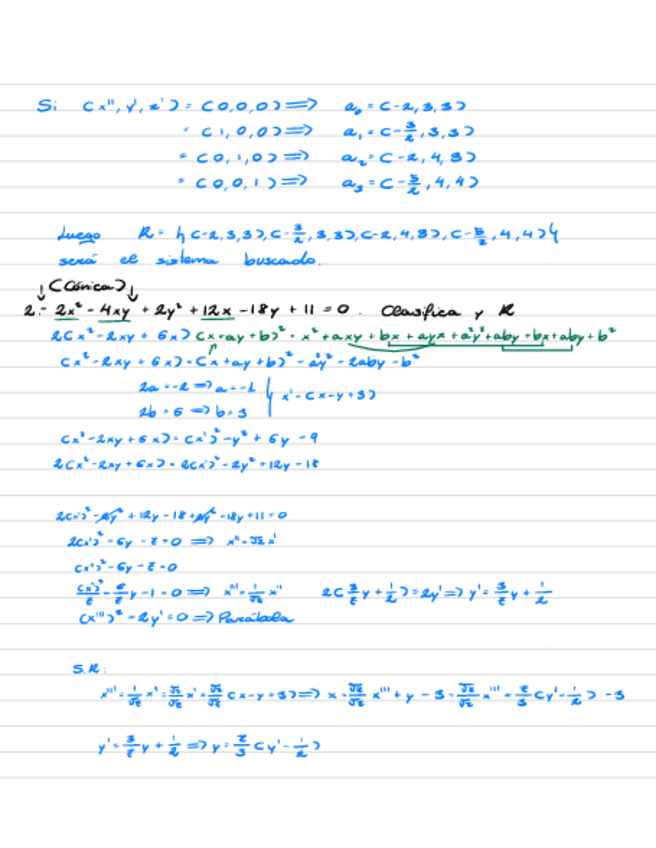 Si (x'', y', z') = (0,0,0) => a₀ = (-2,3,3)
= (1,0,0) => a₁ = (-3/2,3,3)
= (0,1,0) => a₂ = (-2,4,3)
= (0,0,1) => a₃ = (-5/2,4,4)
Luego R = {(-2,3,3),(-3/2,3,3),(-2,4,3),(-5/2,4,4)}
será el sistema buscado.
(Cónica)
2.- 2x² - 4xy + 2y² + 12x - 18y + 11 = 0. Clasifica y R
2(x² - 2xy + 6x) (x+ay+b)² = x² + axy + bx + ayx + a²y² + aby + bx + aby + b²
(x² - 2xy + 6x) = (x+ay+b)² - a²y² - 2aby - b²
2a = -2 => a = -1
x' = (x-y+3)
2b = 6 => b = 3
(x² - 2xy + 6x) = (x')² - y² + 6y - 9
2(x² - 2xy + 6x) = 2(x')² - 2y² + 12y - 18
2(x')² - 2y² + 12y - 18 + 2y² - 18y + 11 = 0
2(x')² - 6y - 7 = 0 => x'' = √2 x'
(x'')² - 6y - 7 = 0
(x'')²/7 - 6/7 y - 1 = 0 => x''' = 1/√7 x'' 2(3/7 y + 1/2) = 2y' => y' = 3/7 y + 1/2
(x''')² - 2y' = 0 => Parábola
S.R:
x''' = 1/√7 x'' = √2/√7 x' = √2/√7 (x-y+3) => x = √7/√2 x''' + y - 3 = √7/√2 x''' + 7/3 (y' - 1/2) - 3
y' = 3/7 y + 1/2 => y = 7/3 (y' - 1/2)